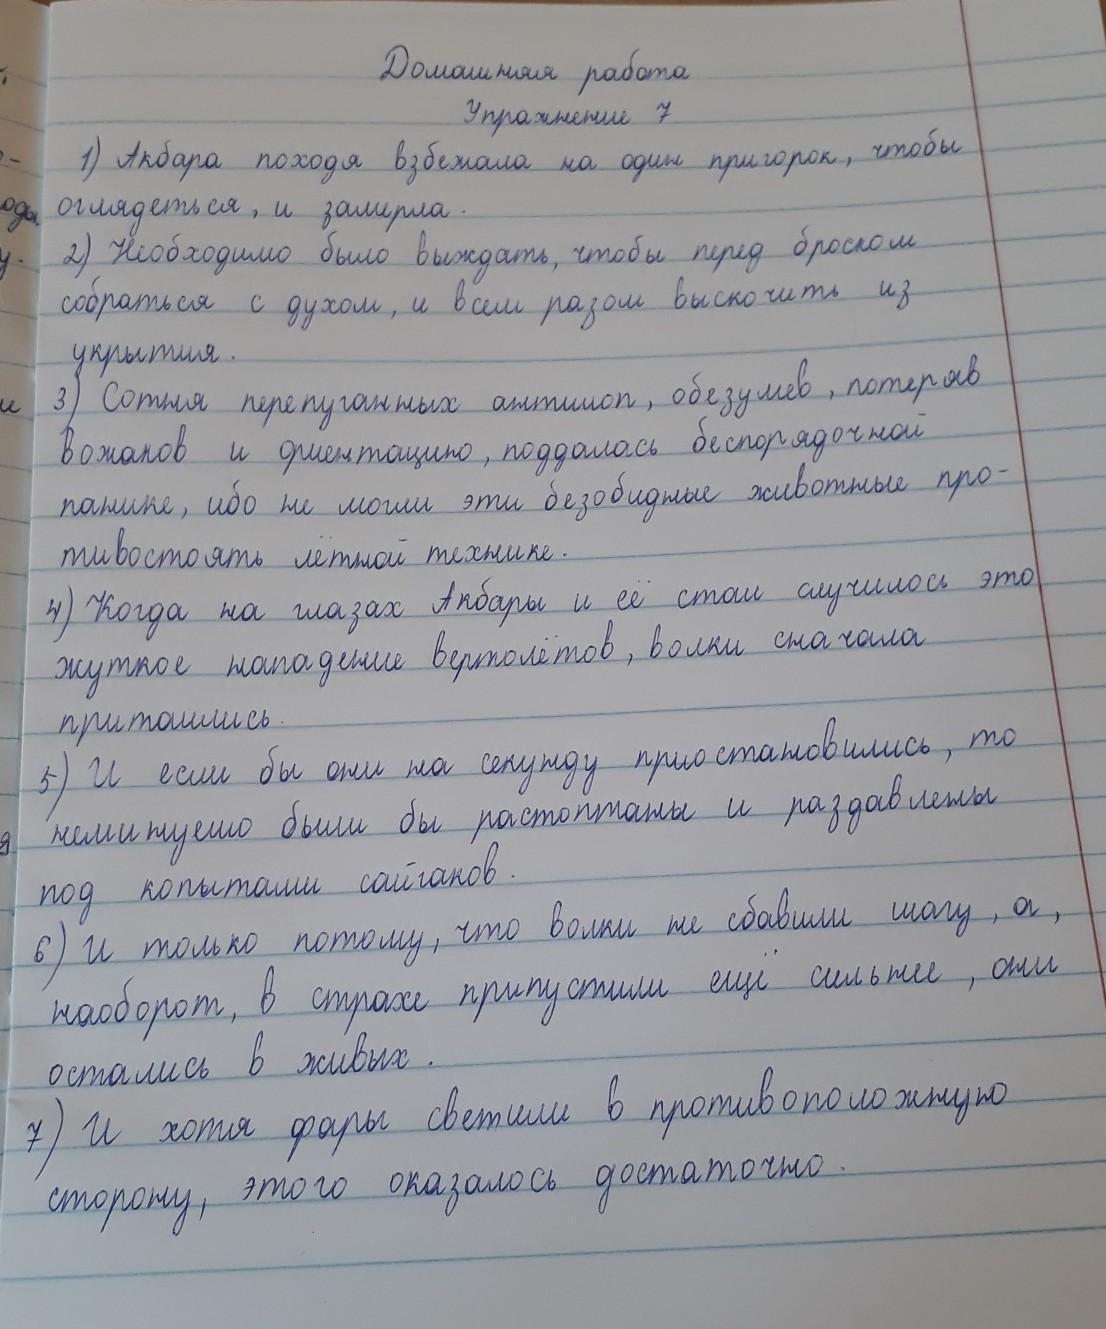 Домашняя работа
Упражнение 7
1) Акбара походя взбежала на один пригорок, чтобы
оглядеться, и замерла.
2) Необходимо было выждать, чтобы перед броском
собраться с духом, и всем разом выскочить из
укрытия.
3) Сотня перепуганных антилоп, обезумев, потеряв
вожаков и ориентацию, поддалась беспорядочной
панике, ибо не могли эти безобидные животные про-
тивостоять лётной технике.
4) Когда на глазах Акбары и её стаи случилось это
жуткое нападение вертолётов, волки сначала
притаились.
5) И если бы они на секунду приостановились, то
неминуемо были бы растоптаны и раздавлены
под копытами сайгаков.
6) И только потому, что волки не сбавили шагу, а,
наоборот, в страхе припустили ещё сильнее, они
остались в живых.
7) И хотя фары светили в противоположную
сторону, этого оказалось достаточно.